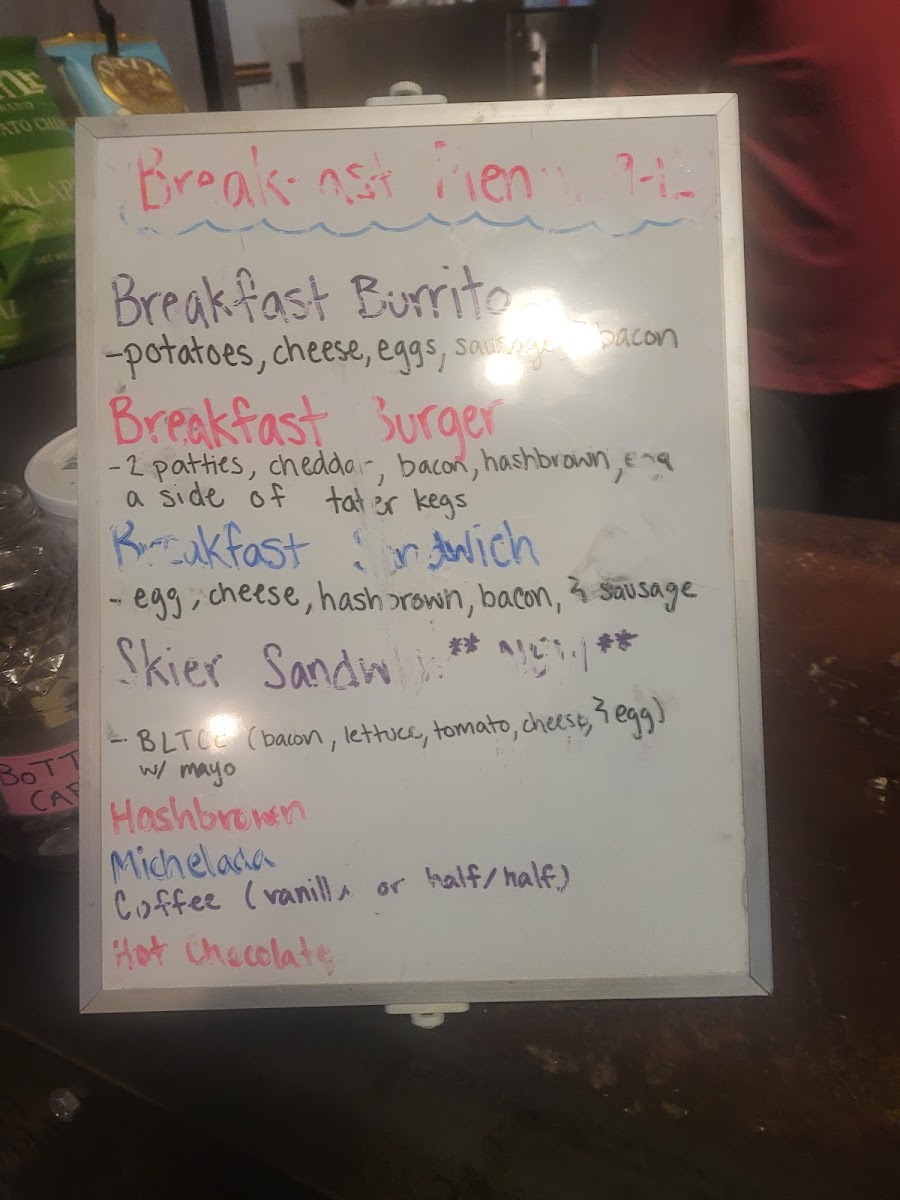 Breakfast Menu 9-12
Breakfast Burrito
-potatoes, cheese, eggs, sausage, & bacon
Breakfast Burger
-2 patties, cheddar, bacon, hashbrown, egg
a side of tater kegs
Breakfast Sandwich
- egg, cheese, hashbrown, bacon, & sausage
Skier Sandwich ** **
- BLTCE (bacon, lettuce, tomato, cheese, & egg)
w/ mayo
Hashbrown
Michelada
Coffee (vanilla or half/half)
Hot Chocolate
BOTT
CAP